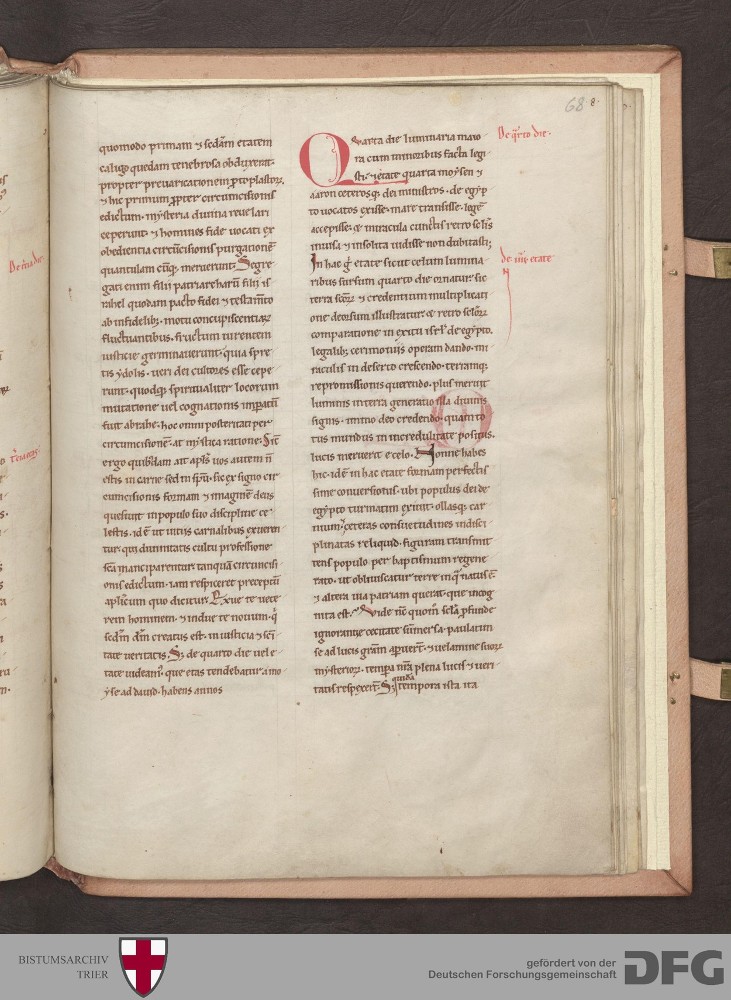 68 8.
quomodo primam ⁊ sedam etatem
caligo quedam tenebrosa obduxerat.
propter prevaricationem ꝓtoplastoꝝ.
⁊ hic primum ꝓpter circumcisionis
edictum. mysteria divina revelari
ceperunt. ⁊ homines fide vocati ex
obedientia circūcisionis purgationē
quantulam cūq; meruerunt. Segre
gati enim filii patriarcharū filii is
rahel quodam pacto fidei ⁊ testam̄to
ab infidelib; motu concupiscentiaꝝ
fluctuantibus. fructum virentem
iusticie germinaverunt. quia spre
tis ydolis. veri dei cultores esse cepe
runt. quodq; spiritualiter locorum
mutatione vel cognationis
fuit abrahe. hoc omni posteritati per
circumcisionē. at mystica ratione.
ergo quibdam ait apls vos autem n̄
estis in carne sed in spū. sic ex signo cir
cumcisionis formam ⁊ imaginē deus
quesivit in populo suo discipline ce
lestis. idē ut vitiis carnalibus exueren
tur qui divinitatis cultu professione
scā manciparentur tanquā circuncisi
onis edictum. iam respiceret preceptū
aplicum quo dicitur. Exue te vete
rem hominem. ⁊ indue te novum. q
sedm dm creatus est. in iusticia ⁊ sci
tate veritatis. S; de quarto die vel e
tate videam'. que etas tendebatur a mo
yse ad david. habens annos
Quarta die luminaria maio
ra cum minoribus facta legi
sti. ⁊ etate quarta moysen ⁊
aaron ceterosq; dei ministros. de egyp
to vocatos exisse. mare transisse. legē
accepisse. ⁊ miracula cunctis retro seclis
invisa ⁊ insolita vidisse non dubitasti;
In hac g etate sicut celum lumina
ribus sursum quarto die ornatur. sic
terra scoꝝ ⁊ credentium multiplicati
one deorsum illustratur. ⁊ retro scloꝝ
comparatione in exitu isrl de egypto.
legalib; cerimoniis operam dando. mi
raculis in deserto crescendo. terramq;
repromissionis querendo. plus meruit
luminis in terra generatio ista divinis
signis. immo deo credendo. quam to
tus mundus in incredulitate positus.
lucis meruerit e celo. Nonne habes
hic. idē in hac etate formam perfectis
sime conversionis. ubi populus dei de
egypto turmatim exivit. ollasq; car
nium. ⁊ ceteras consuetudines indisci
plinatas reliquid. figuram transmit
tens populo per baptismum regene
rato. ut obliviscatur terre in q natus ē.
⁊ altera via patriam querat. que incog
nita est. Vide nc quom scla ꝓfunde
ignorantie cecitate sūmersa. paulatim
se ad lucis gram apuert. ⁊ velamine suoꝝ
mysterioꝝ. tempa nra plena lucis ⁊ veri
tatis respexert. S; quedā tempora ista ita
De q̄rto die.
de iiii. etate